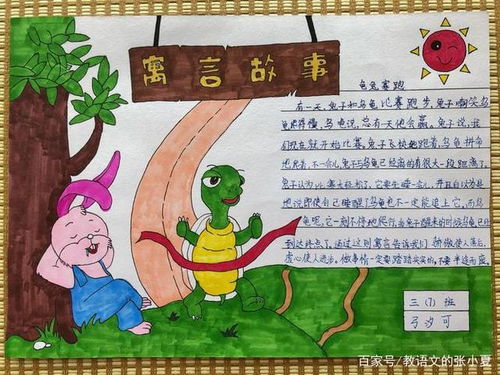 寓言故事
龟兔赛跑
有一天,兔子和乌龟比赛跑步,兔子嘲笑乌
龟爬得慢,乌龟说,总有天他会赢。兔子说,我
们现在就开始比赛,兔子飞快地跑着,乌龟拼命
地爬着,不一会儿,兔子与乌龟已经离的有很大一段距离了。
兔子认为比赛太轻松了,它要先睡一会儿,并且自以为是
地说即使自己睡醒了乌龟也不一定能追上它。而乌
龟呢,它一刻不停地爬行,当兔子醒来的时候乌龟已经
到达终点了。通过这则寓言告诉我们:骄傲使人落后,
虚心使人进步。做事情一定要踏踏实实的,不要半途而废。
三(7)班
弓汐可
百家号/教语文的张小夏